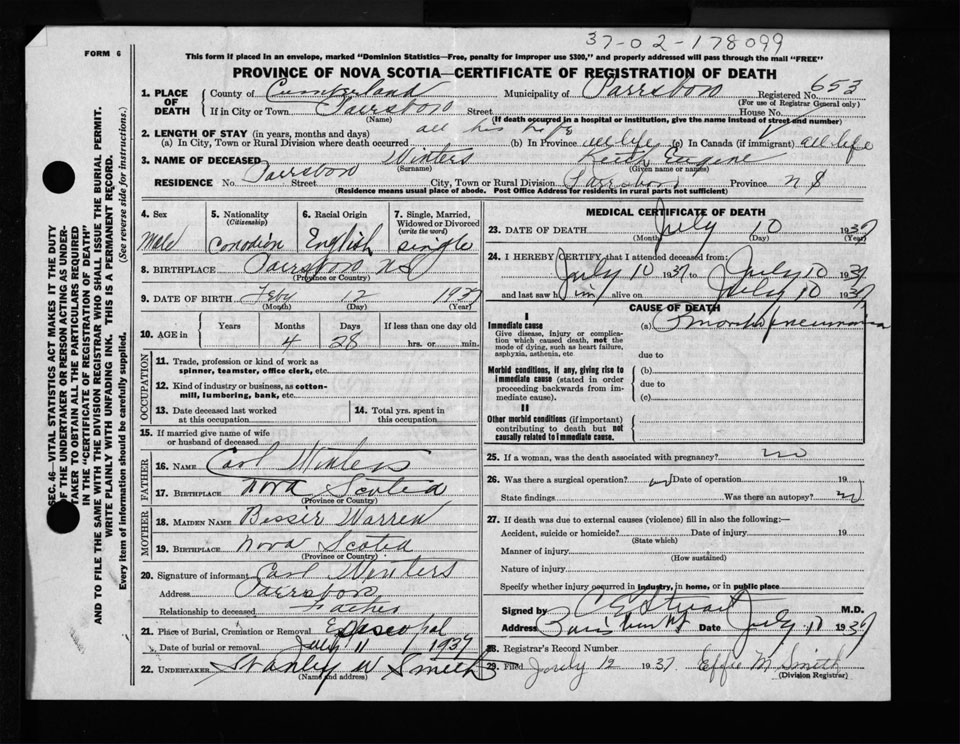 37-02-178099
FORM 6
This form if placed in an envelope, marked "Dominion Statistics—Free, penalty for improper use $300," and properly addressed will pass through the mail "FREE"
PROVINCE OF NOVA SCOTIA—CERTIFICATE OF REGISTRATION OF DEATH
1. PLACE OF DEATH County of Cumberland Municipality of Parrsboro Registered No. 653
(For use of Registrar General only)
If in City or Town Parrsboro Street House No.
(Name) (If death occurred in a hospital or institution, give the name instead of street and number)
2. LENGTH OF STAY (in years, months and days)
(a) In City, Town or Rural Division where death occurred all his life (b) In Province all life (c) In Canada (if immigrant) all life
3. NAME OF DECEASED Winters Keith Eugene
(Surname) (Given name or names)
RESIDENCE No. Parrsboro Street City, Town or Rural Division Parrsboro Province N S
(Residence means usual place of abode. Post Office Address for residents in rural parts not sufficient)
4. Sex Male
5. Nationality (Citizenship) Canadian
6. Racial Origin English
7. Single, Married, Widowed or Divorced (write the word) single
8. BIRTHPLACE Parrsboro NS
(Province or Country)
9. DATE OF BIRTH Feby 12 1937
(Month) (Day) (Year)
10. AGE in Years Months Days If less than one day old
4 28 hrs. or min.
OCCUPATION
11. Trade, profession or kind of work as spinner, teamster, office clerk, etc.
12. Kind of industry or business, as cotton-mill, lumbering, bank, etc.
13. Date deceased last worked at this occupation
14. Total yrs. spent in this occupation
15. If married give name of wife or husband of deceased
FATHER
16. NAME Carl Winters
17. BIRTHPLACE Nova Scotia
(Province or Country)
MOTHER
18. MAIDEN NAME Bessie Warren
19. BIRTHPLACE Nova Scotia
(Province or Country)
20. Signature of informant Carl Winters
Address Parrsboro
Relationship to deceased Father
21. Place of Burial, Cremation or Removal Episcopal
Date of burial or removal July 11 1937
22. UNDERTAKER Stanley W Smith
(Name and address)
MEDICAL CERTIFICATE OF DEATH
23. DATE OF DEATH July 10 1937
(Month) (Day) (Year)
24. I HEREBY CERTIFY that I attended deceased from:
July 10 1937 to July 10 1937
and last saw him alive on July 10 1937
CAUSE OF DEATH
I
Immediate cause
Give disease, injury or complication which caused death, not the mode of dying, such as heart failure, asphyxia, asthenia, etc
(a) pneumonia
due to
Morbid conditions, if any, giving rise to immediate cause (stated in order proceeding backwards from immediate cause).
(b)
due to
(c)
II
Other morbid conditions (if important) contributing to death but not causally related to immediate cause.
25. If a woman, was the death associated with pregnancy? no
26. Was there a surgical operation? no Date of operation 19
State findings Was there an autopsy? no
27. If death was due to external causes (violence) fill in also the following:—
Accident, suicide or homicide? Date of injury 19
(State which)
Manner of injury
(How sustained)
Nature of injury
Specify whether injury occurred in industry, in home, or in public place
Signed by C E Stuart M.D.
Address Date July 11 1937
28. Registrar's Record Number
29. Filed July 12 1937 Effie M. Smith
(Division Registrar)
SEC. 46—VITAL STATISTICS ACT MAKES IT THE DUTY
OF THE UNDERTAKER OR PERSON ACTING AS UNDER-
TAKER TO OBTAIN ALL THE PARTICULARS REQUIRED
IN THE "CERTIFICATE OF REGISTRATION OF DEATH"
AND TO FILE THE SAME WITH THE DIVISION REGISTRAR WHO SHALL ISSUE THE BURIAL PERMIT.
WRITE PLAINLY WITH UNFADING INK. THIS IS A PERMANENT RECORD.
Every item of information should be carefully supplied. (See reverse side for instructions.)